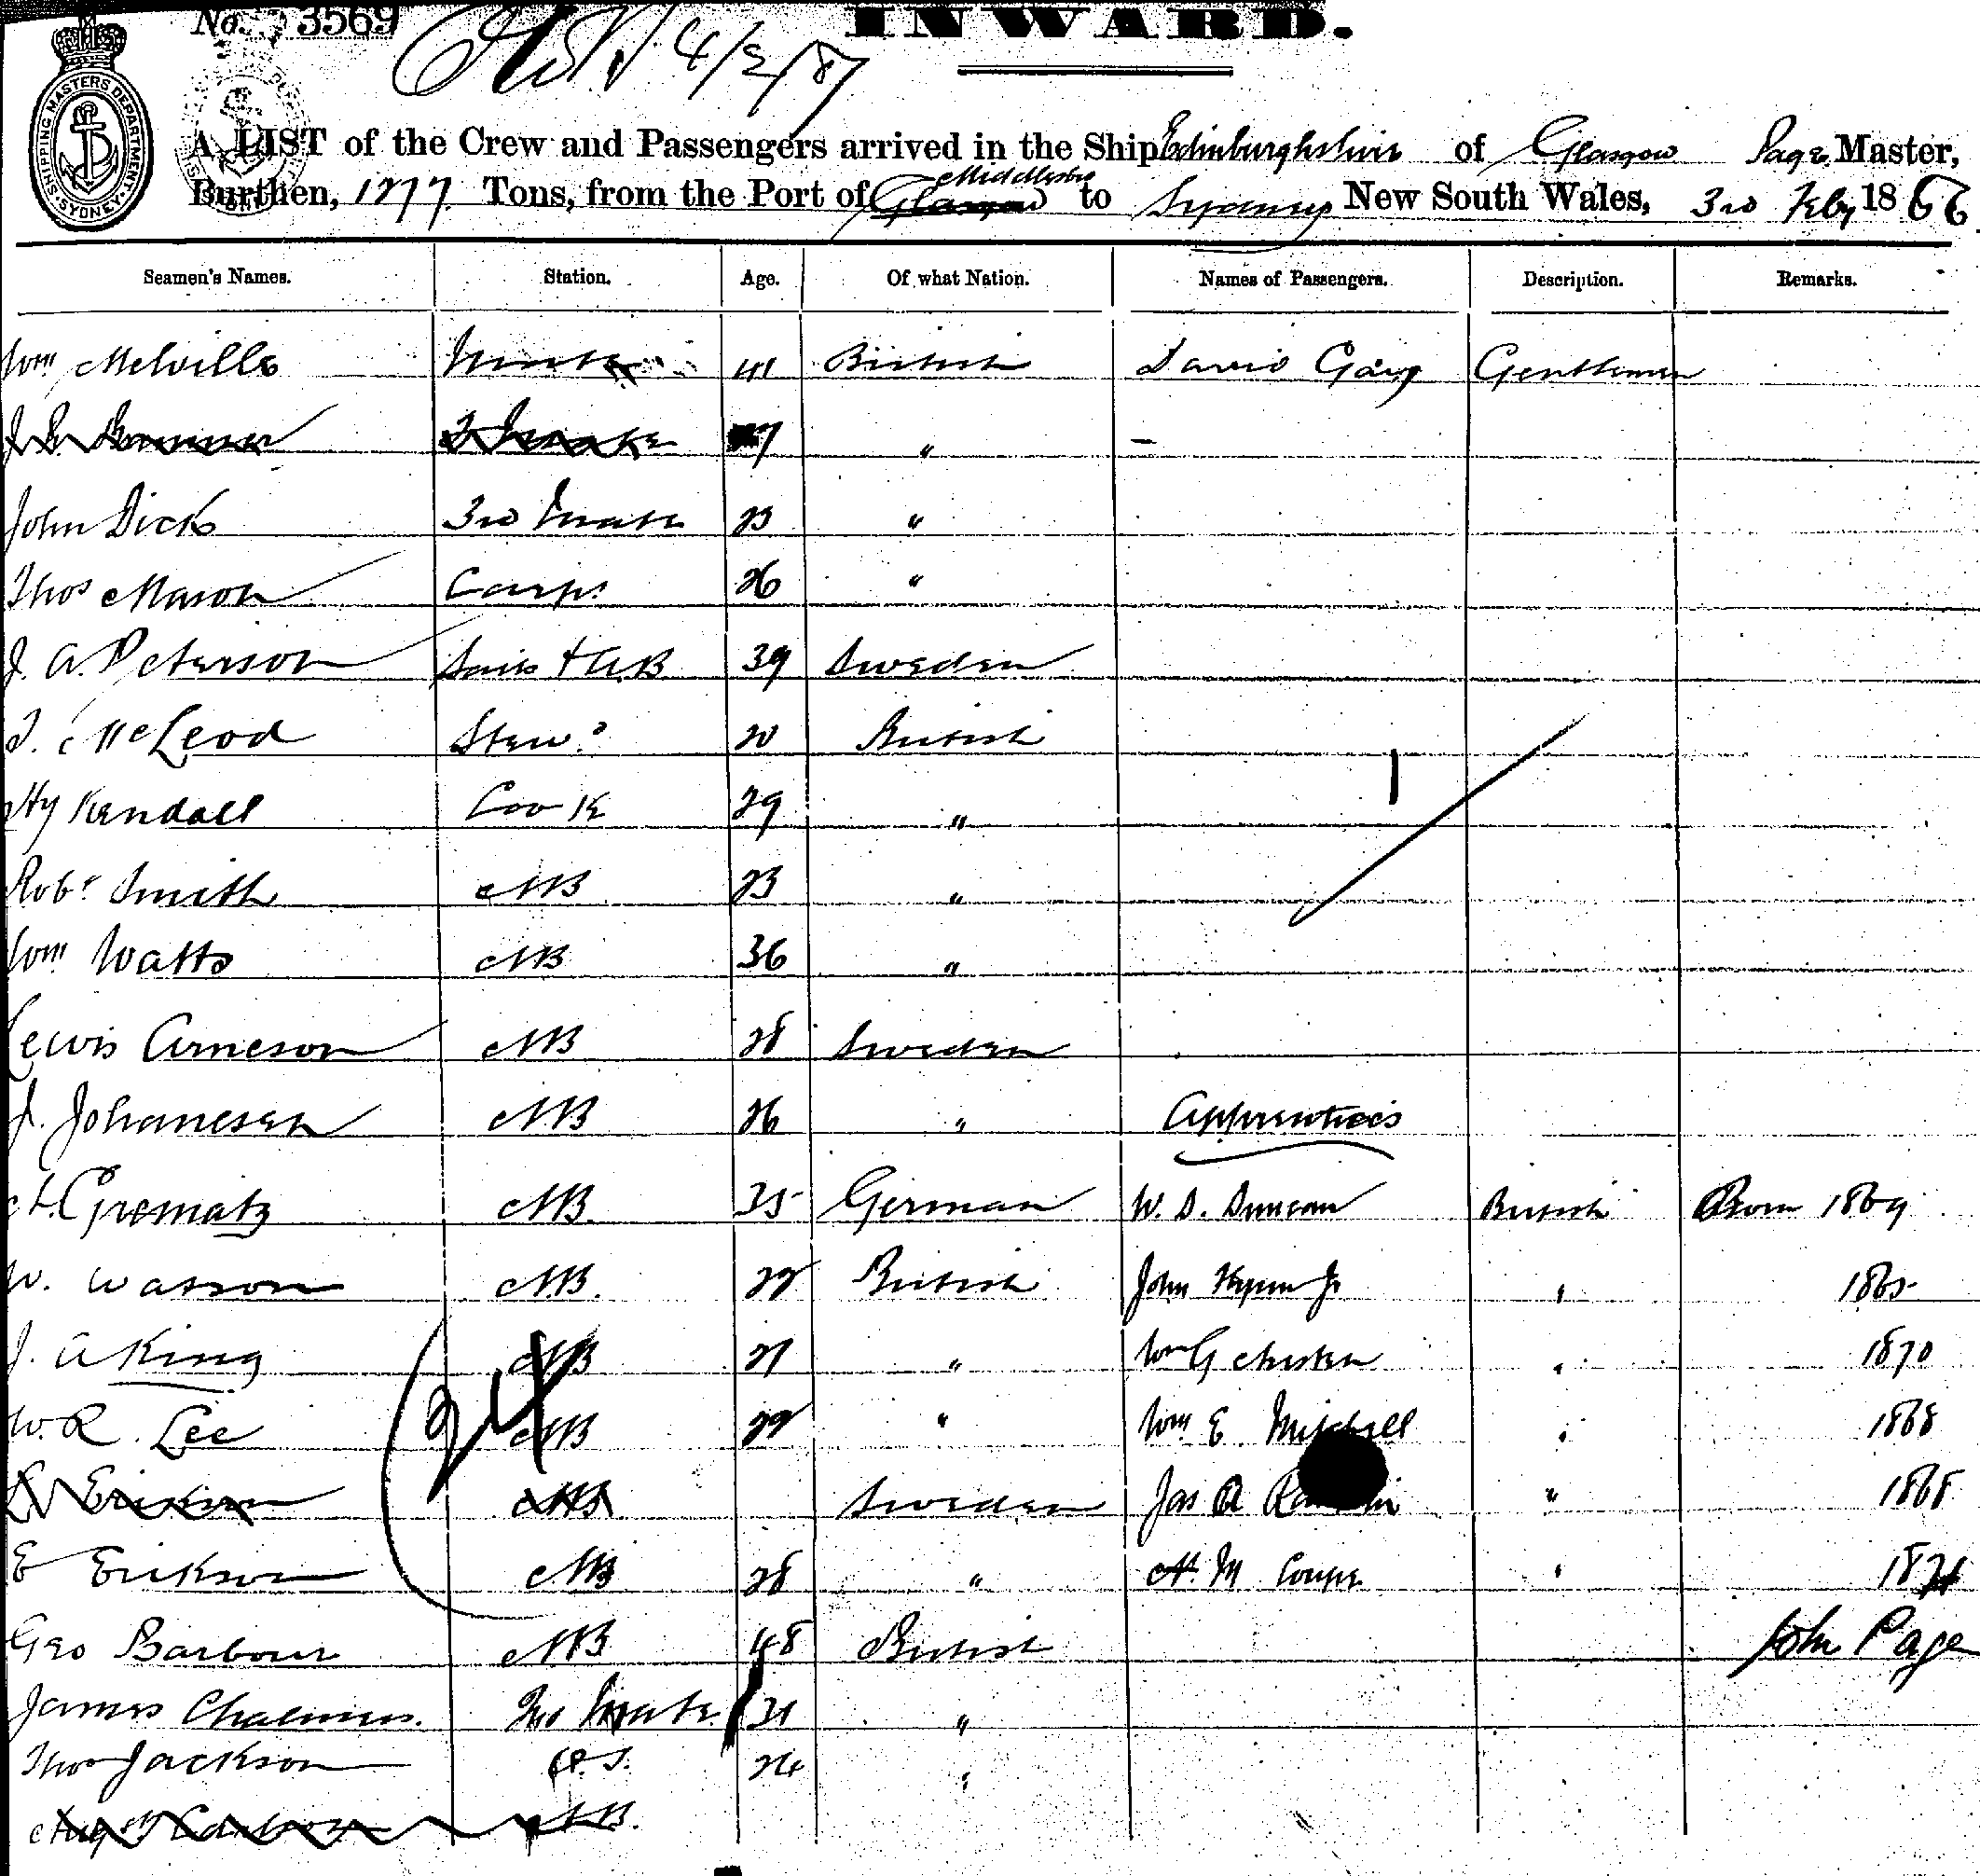 No. 3569 INWARD.
4/2/87
SHIPPING MASTERS DEPARTMENT SYDNEY
A LIST of the Crew and Passengers arrived in the Ship Edinburghshire of Glasgow Page Master,
Burthen, 1277 Tons, from the Port of Glasgow Middlesbro to Sydney New South Wales, 3rd Feby 1886
Seamen's Names. Station. Age. Of what Nation. Names of Passengers. Description. Remarks.
Wm Melville Mate 41 British David Gary Gentleman
2 Mate 7 "
John Dick 3rd Mate 23 "
Thos Mason Carpr 26 "
J. A. Peterson Sails + AB 39 Sweden
McLeod Stewd 20 British
Hy Kendall Cook 29 "
Robt Smith AB 23 "
Wm Watts AB 36 "
Lewis Arneson AB 28 Sweden
J. Johanesen AB 26 " Apprentices
Grematz AB 35 German W. D. Duncan British Born 1869
W. Watson AB. 22 British John Jr " 1865
J. A King AB 21 " Wm G Chesten " 1870
W. R. Lee AB 22 " Wm E Mitchell " 1868
24
Erikson AB Sweden Jas R " 1868
E Erikson AB 28 " A. M Coupe " 1871
Geo Barbour AB 48 British John Page
James Chalmers. 2nd Mate 31 "
Thos Jackson O.S. 24 "
AB.